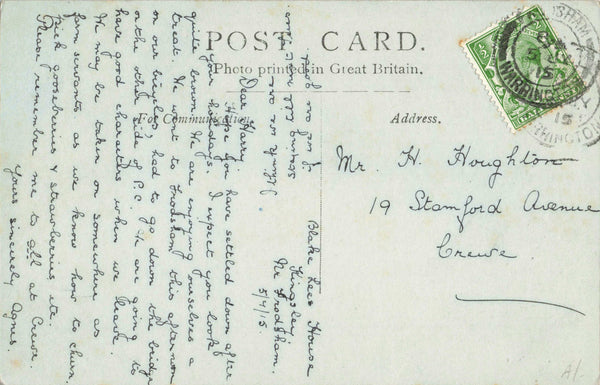 POST CARD.
Photo printed in Great Britain.
For Communication
Address.
WARRINGTON
15
½
½
Mr. H. Houghton
19 Stamford Avenue
Crewe
Blake Lees House
Kingsley
Nr Frodsham.
5/7/15.
Dear Harry
Hope you have settled down after
your holidays. I expect you look
quite brown. We are enjoying ourselves a
treat. We went to Frodsham this afternoon
on our bicycles, had to go down the bridge
on the other side of P.C. We are going to
have good characters when we leave
We may be taken on somewhere as
farm servants as we know how to churn,
pick gooseberries & strawberries etc.
Please remember me to all at Crewe.
Yours sincerely Agnes.
A/-